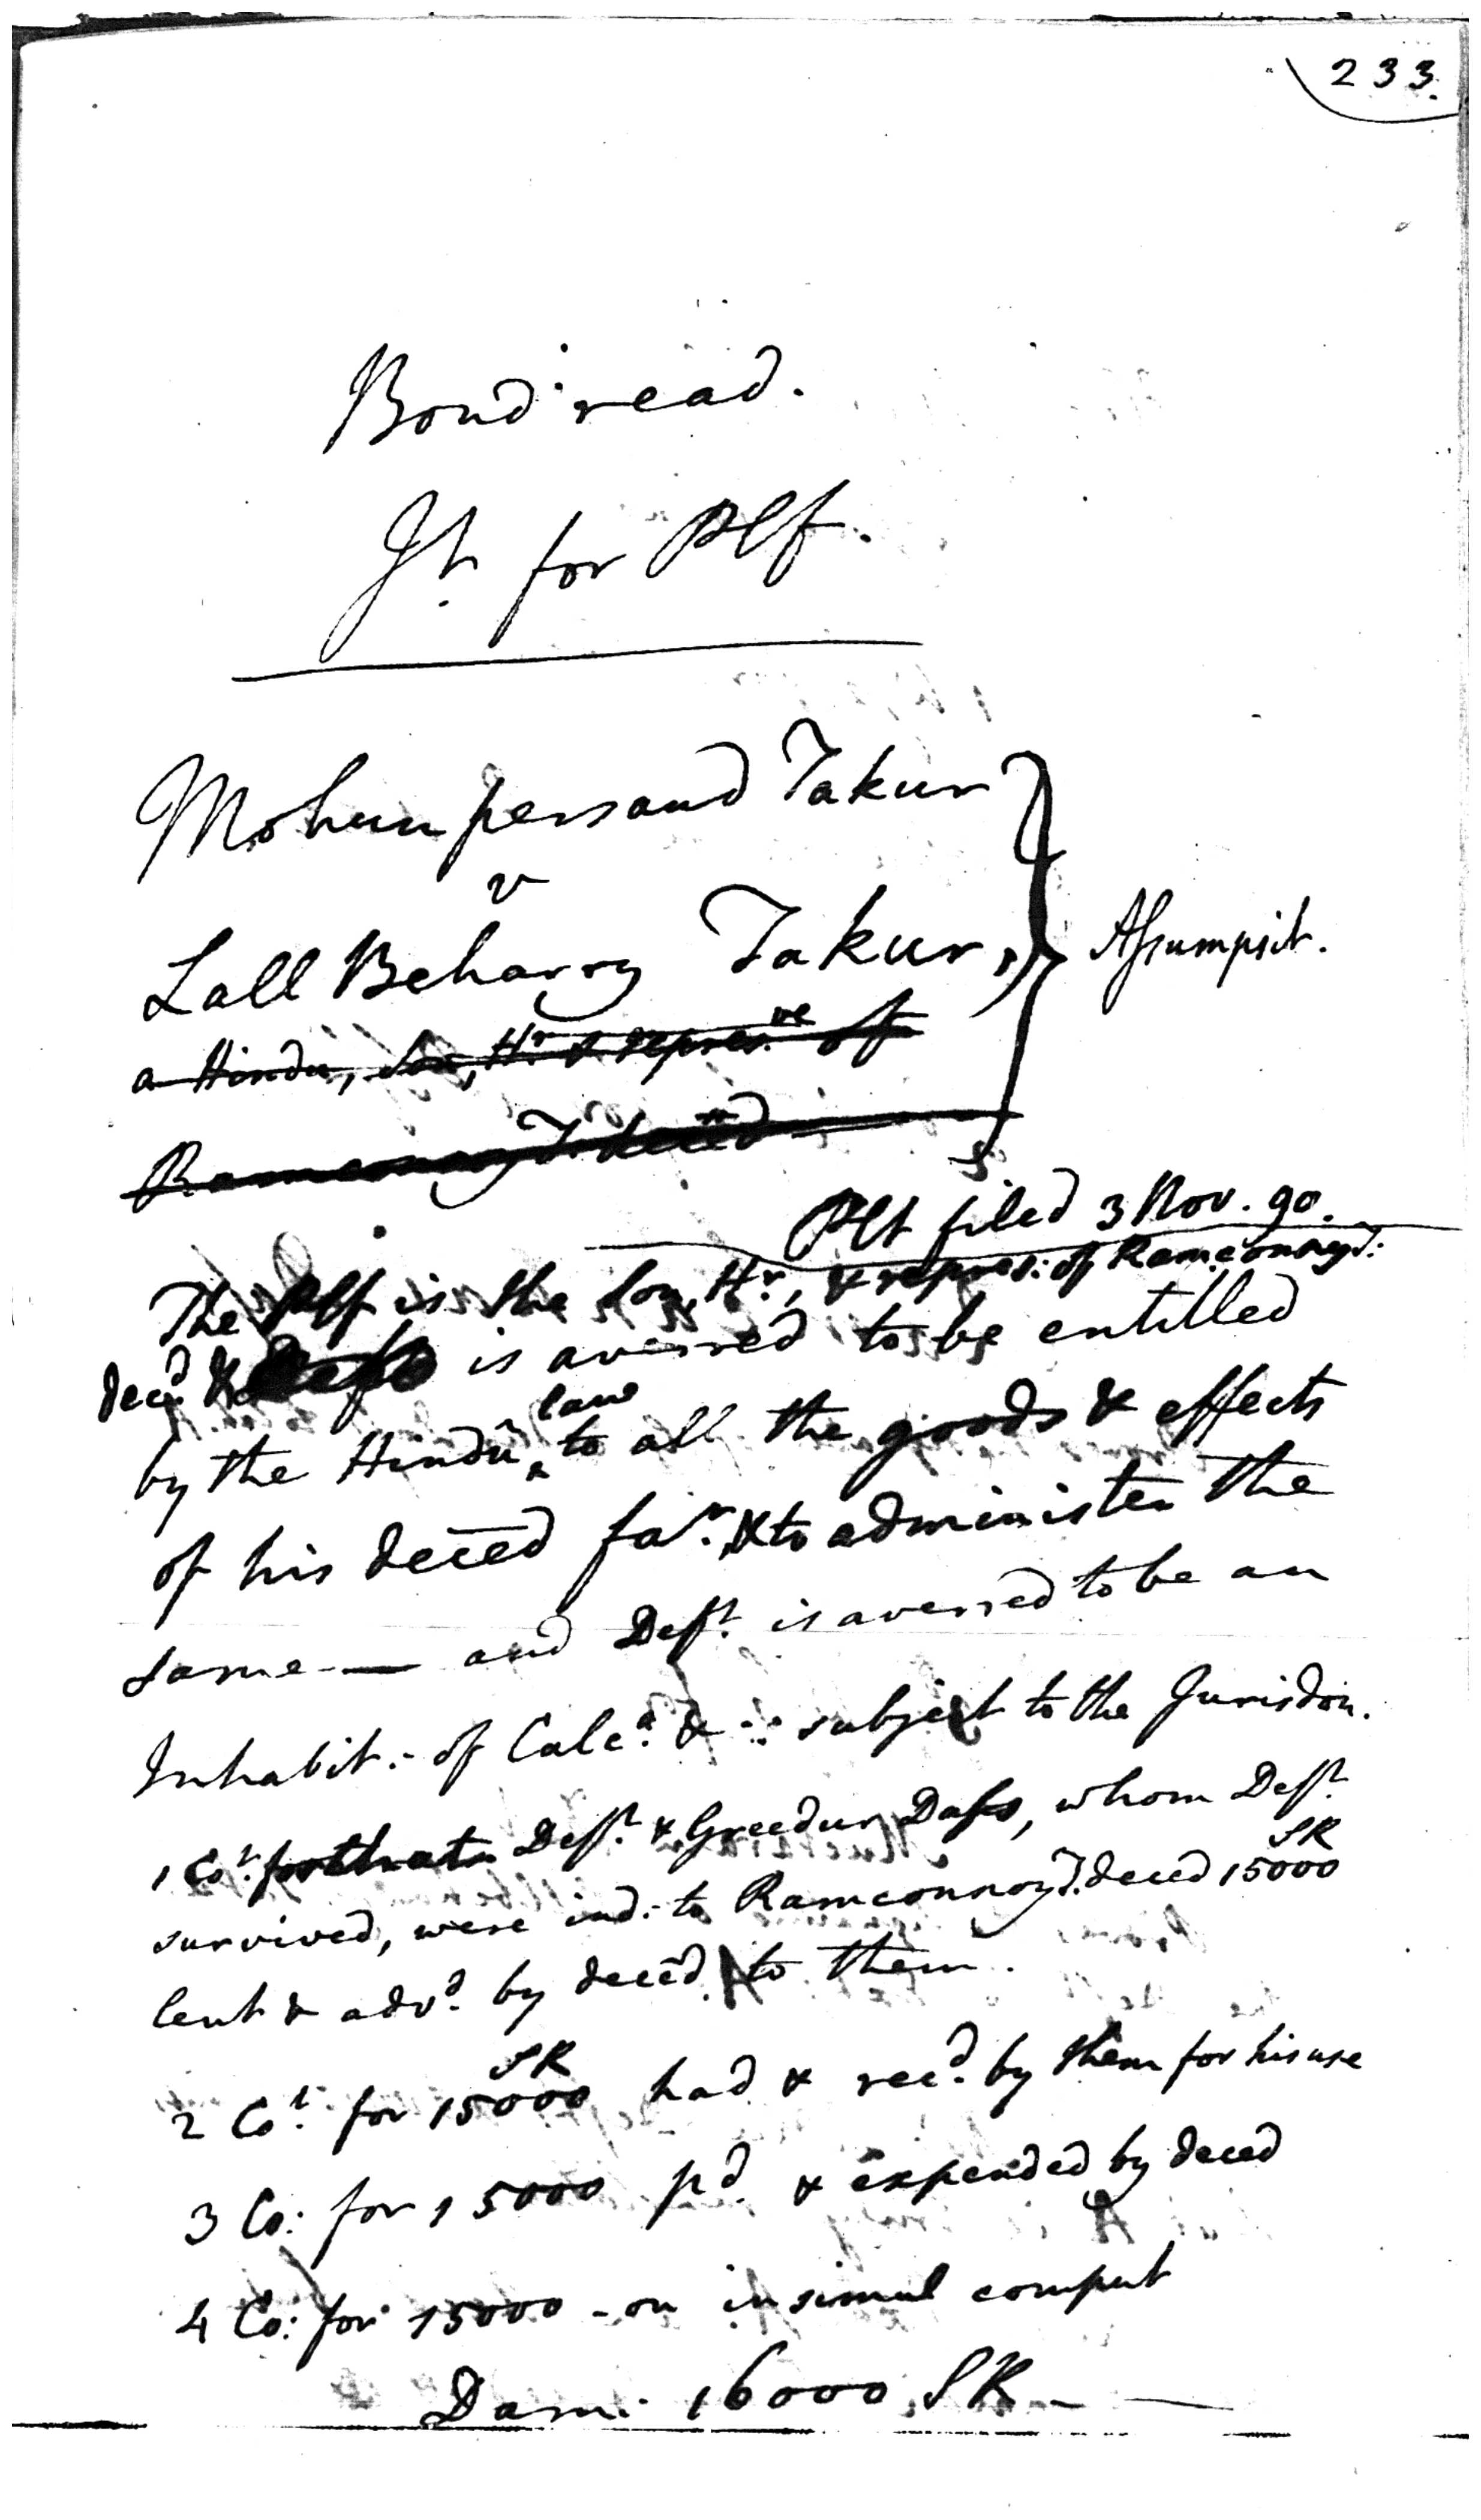 233.
Bond read.
Jt. for Plf.
Mohunpersaud Takur
v
Lall Beharry Takur,
Assumpsit.
a Hindu, Son, Hr & represve of
Plt filed 3 Nov. 90.
The Plf is the son, Hr, & repres: of RamconnoyT:
decd & is averred to be entitled
by the Hindu law to all the goods & effects
of his deced far. & to administer the
same — and Deft. is averred to be an
Inhabit:- of Calca. & :: subject to the Jurisdon.
1 Cot. that Deft. & Greedur Dass, whom Deft.
survived, were ind:- to RamconnoyT. deced 15000 SR
lent & advd. by deced. to them.
2 Cot. for 15000 SR had & recd. by them for his use
3 Co: for 15000 pd. & expended by deced
4 Co: for 15000 - on insimul comput
Dam: 16000 SR -